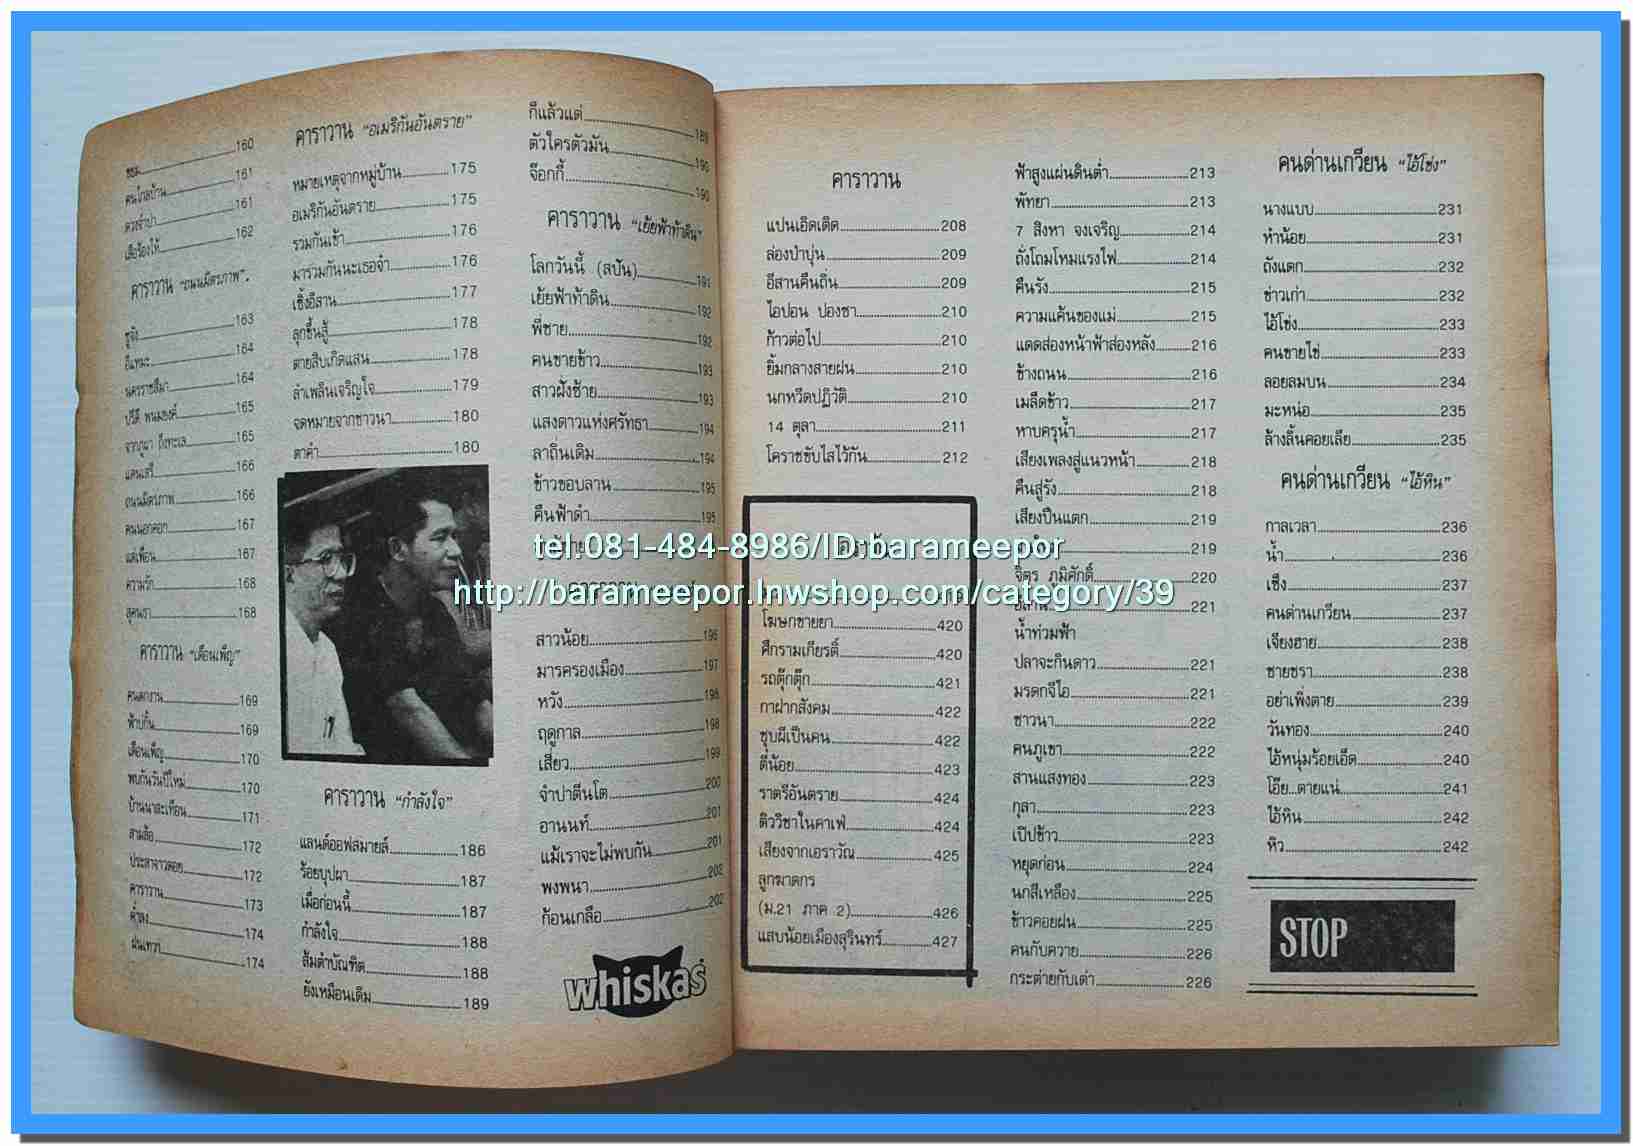 160
คนไกลบ้าน 161
ดวงจำปา 161
เสือร้องไห้ 162
คาราวาน "ถนนมิตรภาพ"
163
164
นครราชสีมา 164
ปรีดี พนมยงค์ 165
จากภูผา ถึงทะเล 165
แดนเสรี 166
ถนนมิตรภาพ 166
คนนอกคอก 167
แด่เพื่อน 167
ความรัก 168
168
คาราวาน "เดือนเพ็ญ"
คนตกงาน 169
ฟ้าปกั้น 169
เดือนเพ็ญ 170
พบกันวันปีใหม่ 170
บ้านนาสะเทือน 171
สามล้อ 172
ประดาจาวดอย 172
คาราวาน 173
174
174
คาราวาน "อเมริกันอันตราย"
หมายเหตุจากหมู่บ้าน 175
อเมริกันอันตราย 175
รวมกันเข้า 176
มารวมกันนะเธอจ๋า 176
เซิ้งอีสาน 177
ลุกขึ้นสู้ 178
ตายสิบเกิดแสน 178
ลำเพลินเจริญใจ 179
จดหมายจากชาวนา 180
ตาคำ 180
คาราวาน "กำลังใจ"
แลนด์ออฟสมายล์ 186
ร้อยบุปผา 187
เมื่อก่อนนี้ 187
กำลังใจ 188
ส้มตำบัณฑิต 188
ยังเหมือนเดิม 189
ก็แล้วแต่ 189
ตัวใครตัวมัน 190
จ๊อกกี้ 190
คาราวาน "เย้ยฟ้าท้าดิน"
โลกวันนี้ (สปัน) 191
เย้ยฟ้าท้าดิน 192
พี่ชาย 192
คนขายข้าว 193
สาวฝั่งซ้าย 193
แสงดาวแห่งศรัทธา 194
ลาถิ่นเดิม 194
ข้าวขอบลาน 195
คืนฟ้าดำ 195
สาวน้อย 196
มารครองเมือง 197
หวัง 198
ฤดูกาล 198
เสี่ยว 199
จำปาตีนโต 200
อานนท์ 201
แม้เราจะไม่พบกัน 201
พงพนา 202
ก้อนเกลือ 202
whiskas
คาราวาน
แปนเอิดเติด 208
ล่องป๋าปุ่น 209
อีสานคืนถิ่น 209
ไอปอน ปองซา 210
ก้าวต่อไป 210
ยิ้มกลางสายฝน 210
นกหวีดปฏิวัติ 210
14 ตุลา 211
โคราชขับไสไว้กัน 212
โฆษกขายยา 420
ศึกรามเกียรติ์ 420
รถตุ๊กตุ๊ก 421
กาฝากสังคม 422
ชุบผีเป็นคน 422
ตี๋น้อย 423
ราตรีอันตราย 424
ติววิชาในคาเฟ่ 424
เสียงจากเอราวัณ 425
ลูกฆาตกร
(ม.21 ภาค 2) 426
แสบน้อยเมืองสุรินทร์ 427
ฟ้าสูงแผ่นดินต่ำ 213
พัทยา 213
7 สิงหา จงเจริญ 214
ถั่งโถมโหมแรงไฟ 214
คืนรัง 215
ความแค้นของแม่ 215
แดดส่องหน้าฟ้าส่องหลัง 216
ข้างถนน 216
เมล็ดข้าว 217
หาบครุน้ำ 217
เสียงเพลงสู่แนวหน้า 218
คืนสู่รัง 218
เสียงปืนแตก 219
219
จิตร ภูมิศักดิ์ 220
อีสาน 221
น้ำท่วมฟ้า
ปลาจะกินดาว 221
มรดกจีไอ 221
ชาวนา 222
คนภูเขา 222
สานแสงทอง 223
กุลา 223
เปิปข้าว 223
หยุดก่อน 224
นกสีเหลือง 225
ข้าวคอยฝน 225
คนกับควาย 226
กระต่ายกับเต่า 226
คนด่านเกวียน "ไอ้โซ่ง"
นางแบบ 231
หำน้อย 231
ถังแตก 232
ข่าวเก่า 232
ไอ้โซ่ง 233
คนขายไข่ 233
ลอยลมบน 234
มะหน่อ 235
ล้างลิ้นคอยเลีย 235
คนด่านเกวียน "ไอ้หิน"
กาลเวลา 236
น้ำ 236
เซ็ง 237
คนด่านเกวียน 237
เจียงฮาย 238
ชายชรา 238
อย่าเพิ่งตาย 239
วันทอง 240
ไอ้หนุ่มร้อยเอ็ด 240
โอ๊ย...ตายแน่ 241
ไอ้หิน 242
หิว 242
STOP
tel.081-484-8986/ID:barameepor
http://barameepor.lnwshop.com/category/39